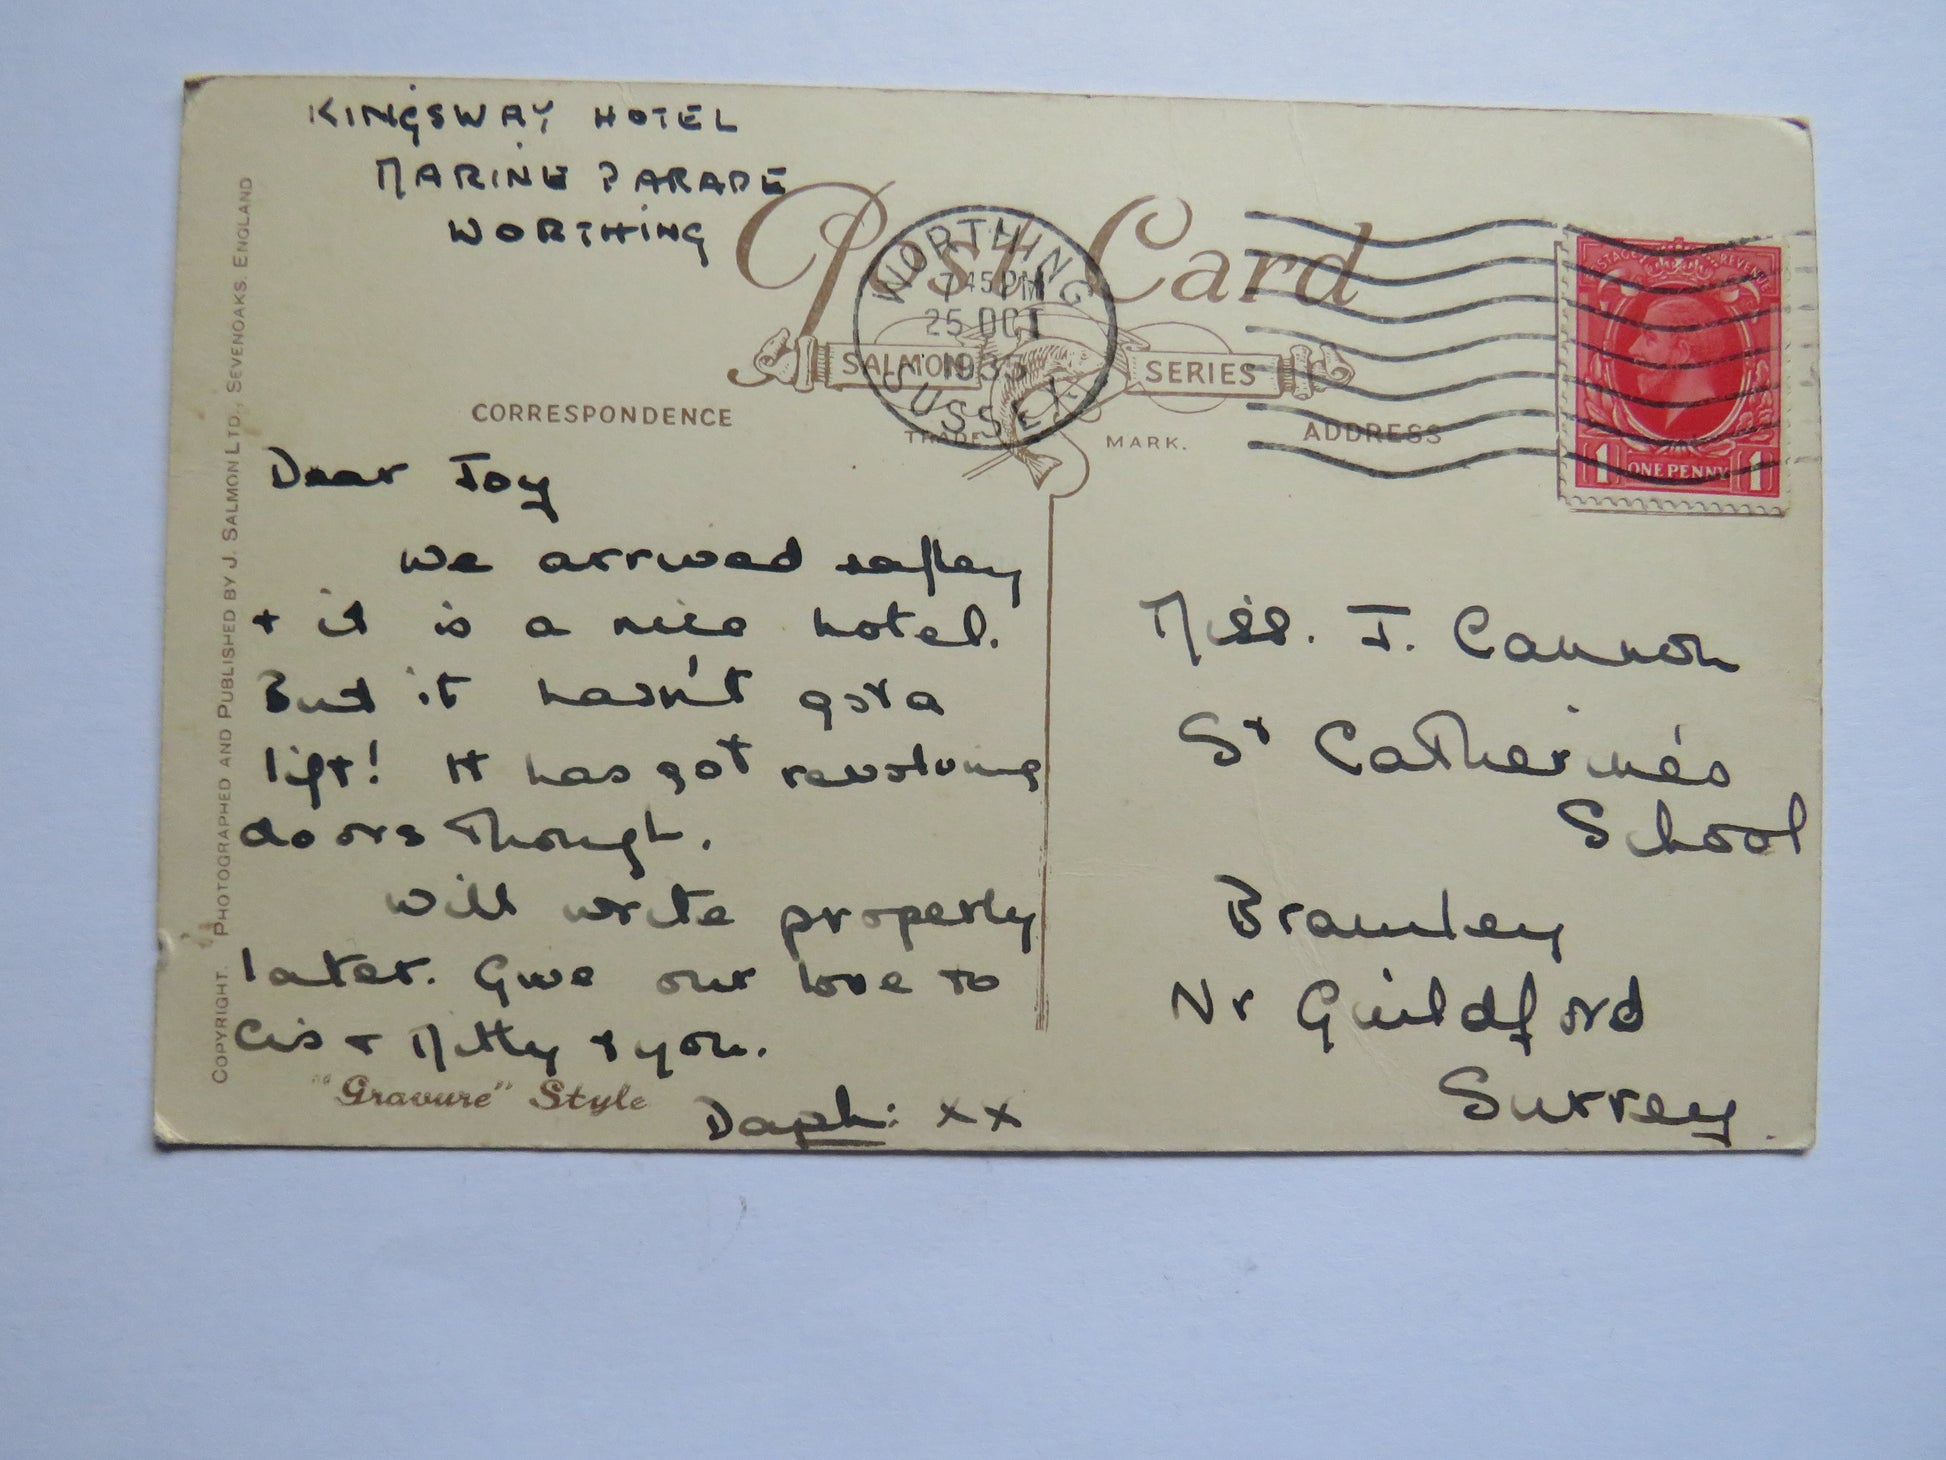 KINGSWAY HOTEL
MARINE PARADE
WORTHING
Post Card
WORTHING
7 45 PM
25 OCT
1935
SUSSEX
SALMON SERIES
TRADE MARK.
CORRESPONDENCE
ADDRESS
POSTAGE REVENUE
1 ONE PENNY 1
Dear Joy
We arrived safley
+ it is a nice hotel.
But it hasn't got a
lift! It has got revolving
doors though.
Will write properly
later. Give our love to
Cis + Mitty + you.
Daph: xx
"Gravure" Style
Miss. J. Cannon
St Catherine's
School
Bramley
Nr Guildford
Surrey.
COPYRIGHT. PHOTOGRAPHED AND PUBLISHED BY J. SALMON LTD., SEVENOAKS. ENGLAND